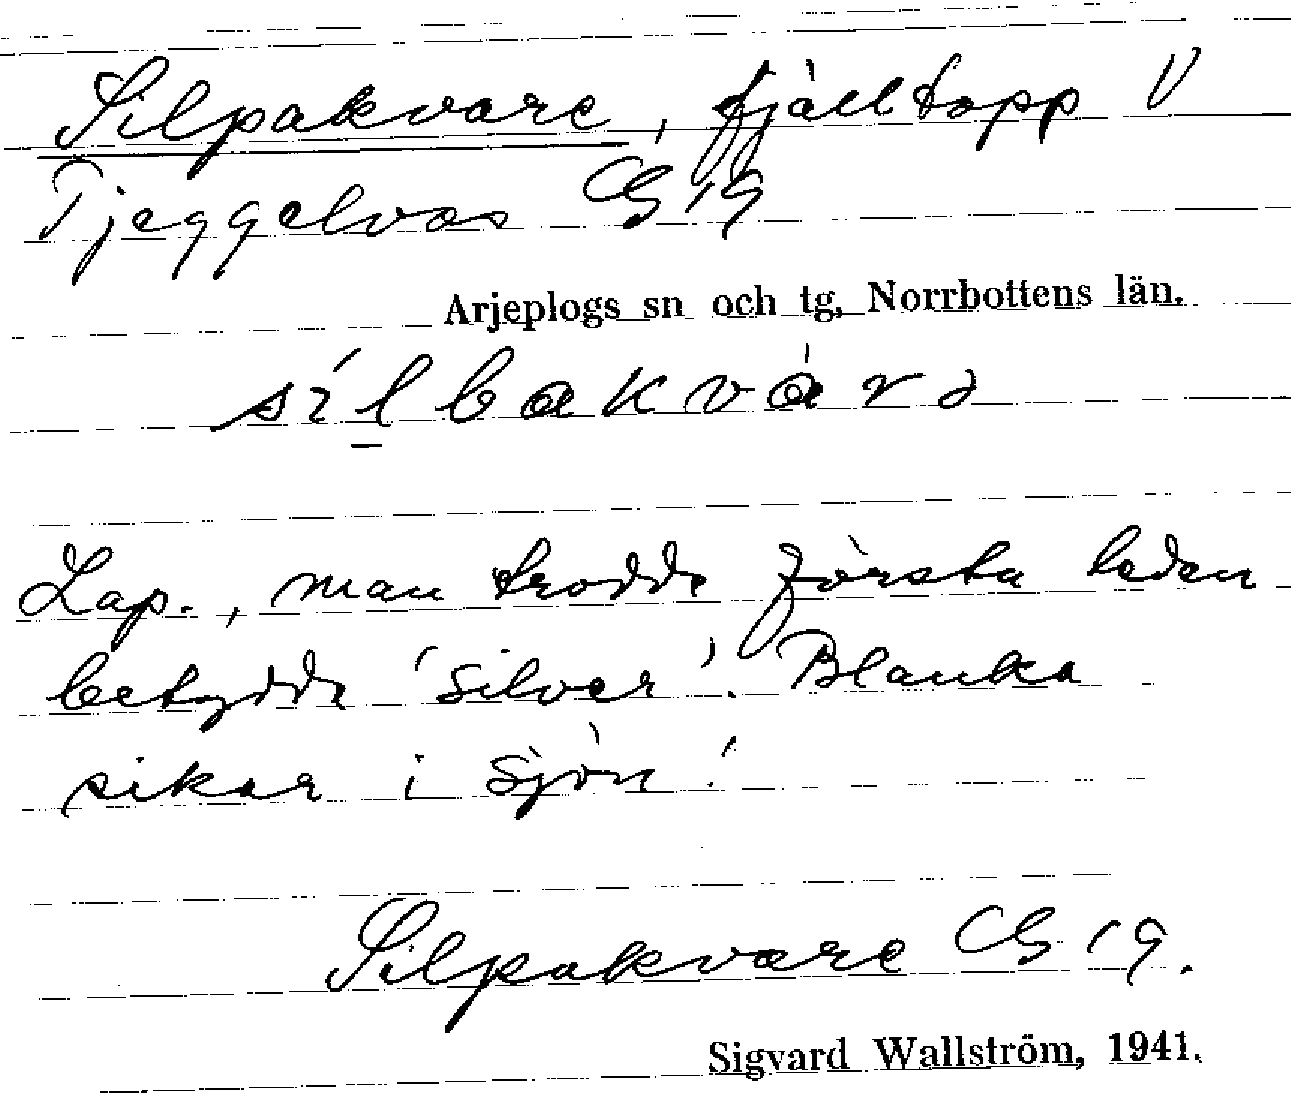 Silpakvare, fjälltopp V
Tjeggelvas CG 19
Arjeplogs sn och tg, Norrbottens län.
sílbakvárə
Lap., man trodde första leden
betydde 'silver'. Blanka
sikar i sjön!
Silpakvare CG 19.
Sigvard Wallström, 1941.